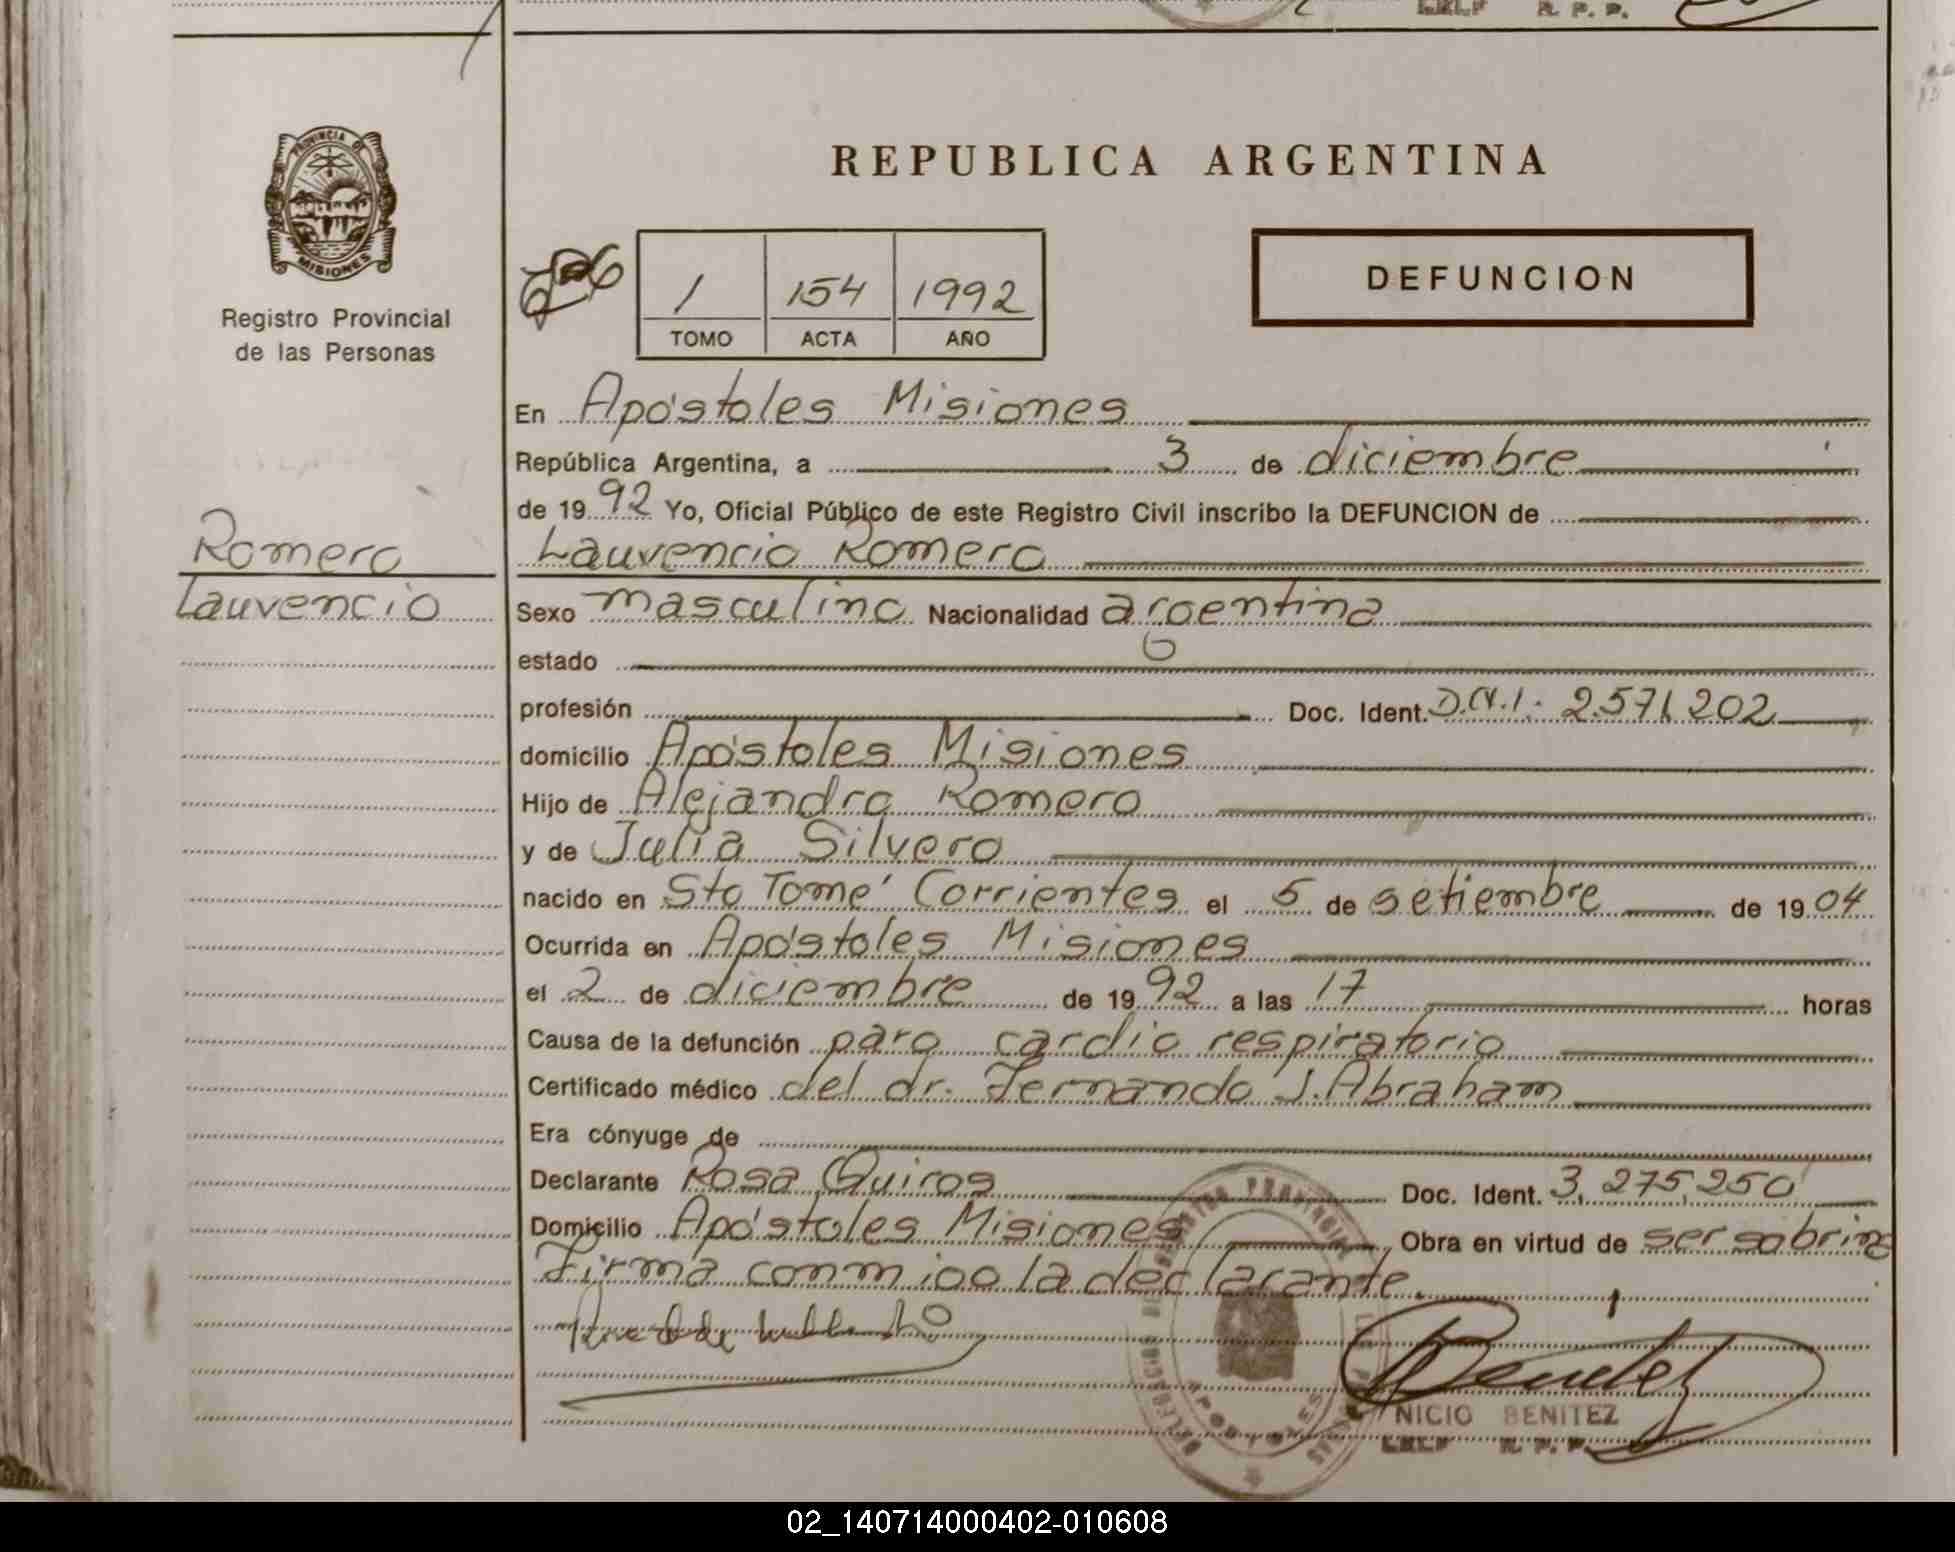 PROVINCIA DE
MISIONES
Registro Provincial
de las Personas
REPUBLICA ARGENTINA
1 154 1992
TOMO ACTA AÑO
DEFUNCION
En Apóstoles Misiones
República Argentina, a 3 de diciembre
de 19 92 Yo, Oficial Público de este Registro Civil inscribo la DEFUNCION de
Romero
Lauvencio Romero
Lauvencio
Sexo masculino Nacionalidad argentina
estado
profesión Doc. Ident. D.N.I. 2.571.202
domicilio Apóstoles Misiones
Hijo de Alejandro Romero
y de Julia Silvero
nacido en Sto Tomé Corrientes el 5 de setiembre de 19 04
Ocurrida en Apóstoles Misiones
el 2 de diciembre de 19 92 a las 17 horas
Causa de la defunción paro cardio respiratorio
Certificado médico del dr. Fernando J. Abraham
Era cónyuge de
Declarante Rosa Quiros Doc. Ident. 3.275.250
Domicilio Apóstoles Misiones Obra en virtud de ser sobrina
Firma conmigo la declarante.
NICIO BENITEZ
R. P. P.
02_140714000402-010608